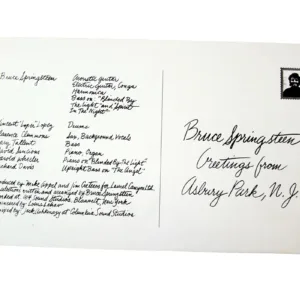 Bruce Springsteen
Acoustic Guitar,
Electric Guitar, Conga
Harmonica
Bass on "Blinded By
The Light" and "Spirit
In The Night"
Vincent "Lopez" Lopez Drums
Clarence Clemons Sax, Background Vocals
Garry Tallent Bass
David Sancious Piano, Organ
Harold Wheeler Piano on "Blinded By The Light"
Richard Davis Upright Bass on "The Angel"
Produced by Mike Appel and Jim Cretecos for Laurel Canyon Ltd.
written and arranged by Bruce Springsteen
Recorded at 914 Sound Studios, Blauvelt, New York
Engineered by Louis Lahav
by Jack Ashkinazy at Columbia Sound Studios
Bruce Springsteen
Greetings from
Asbury Park, N. J.